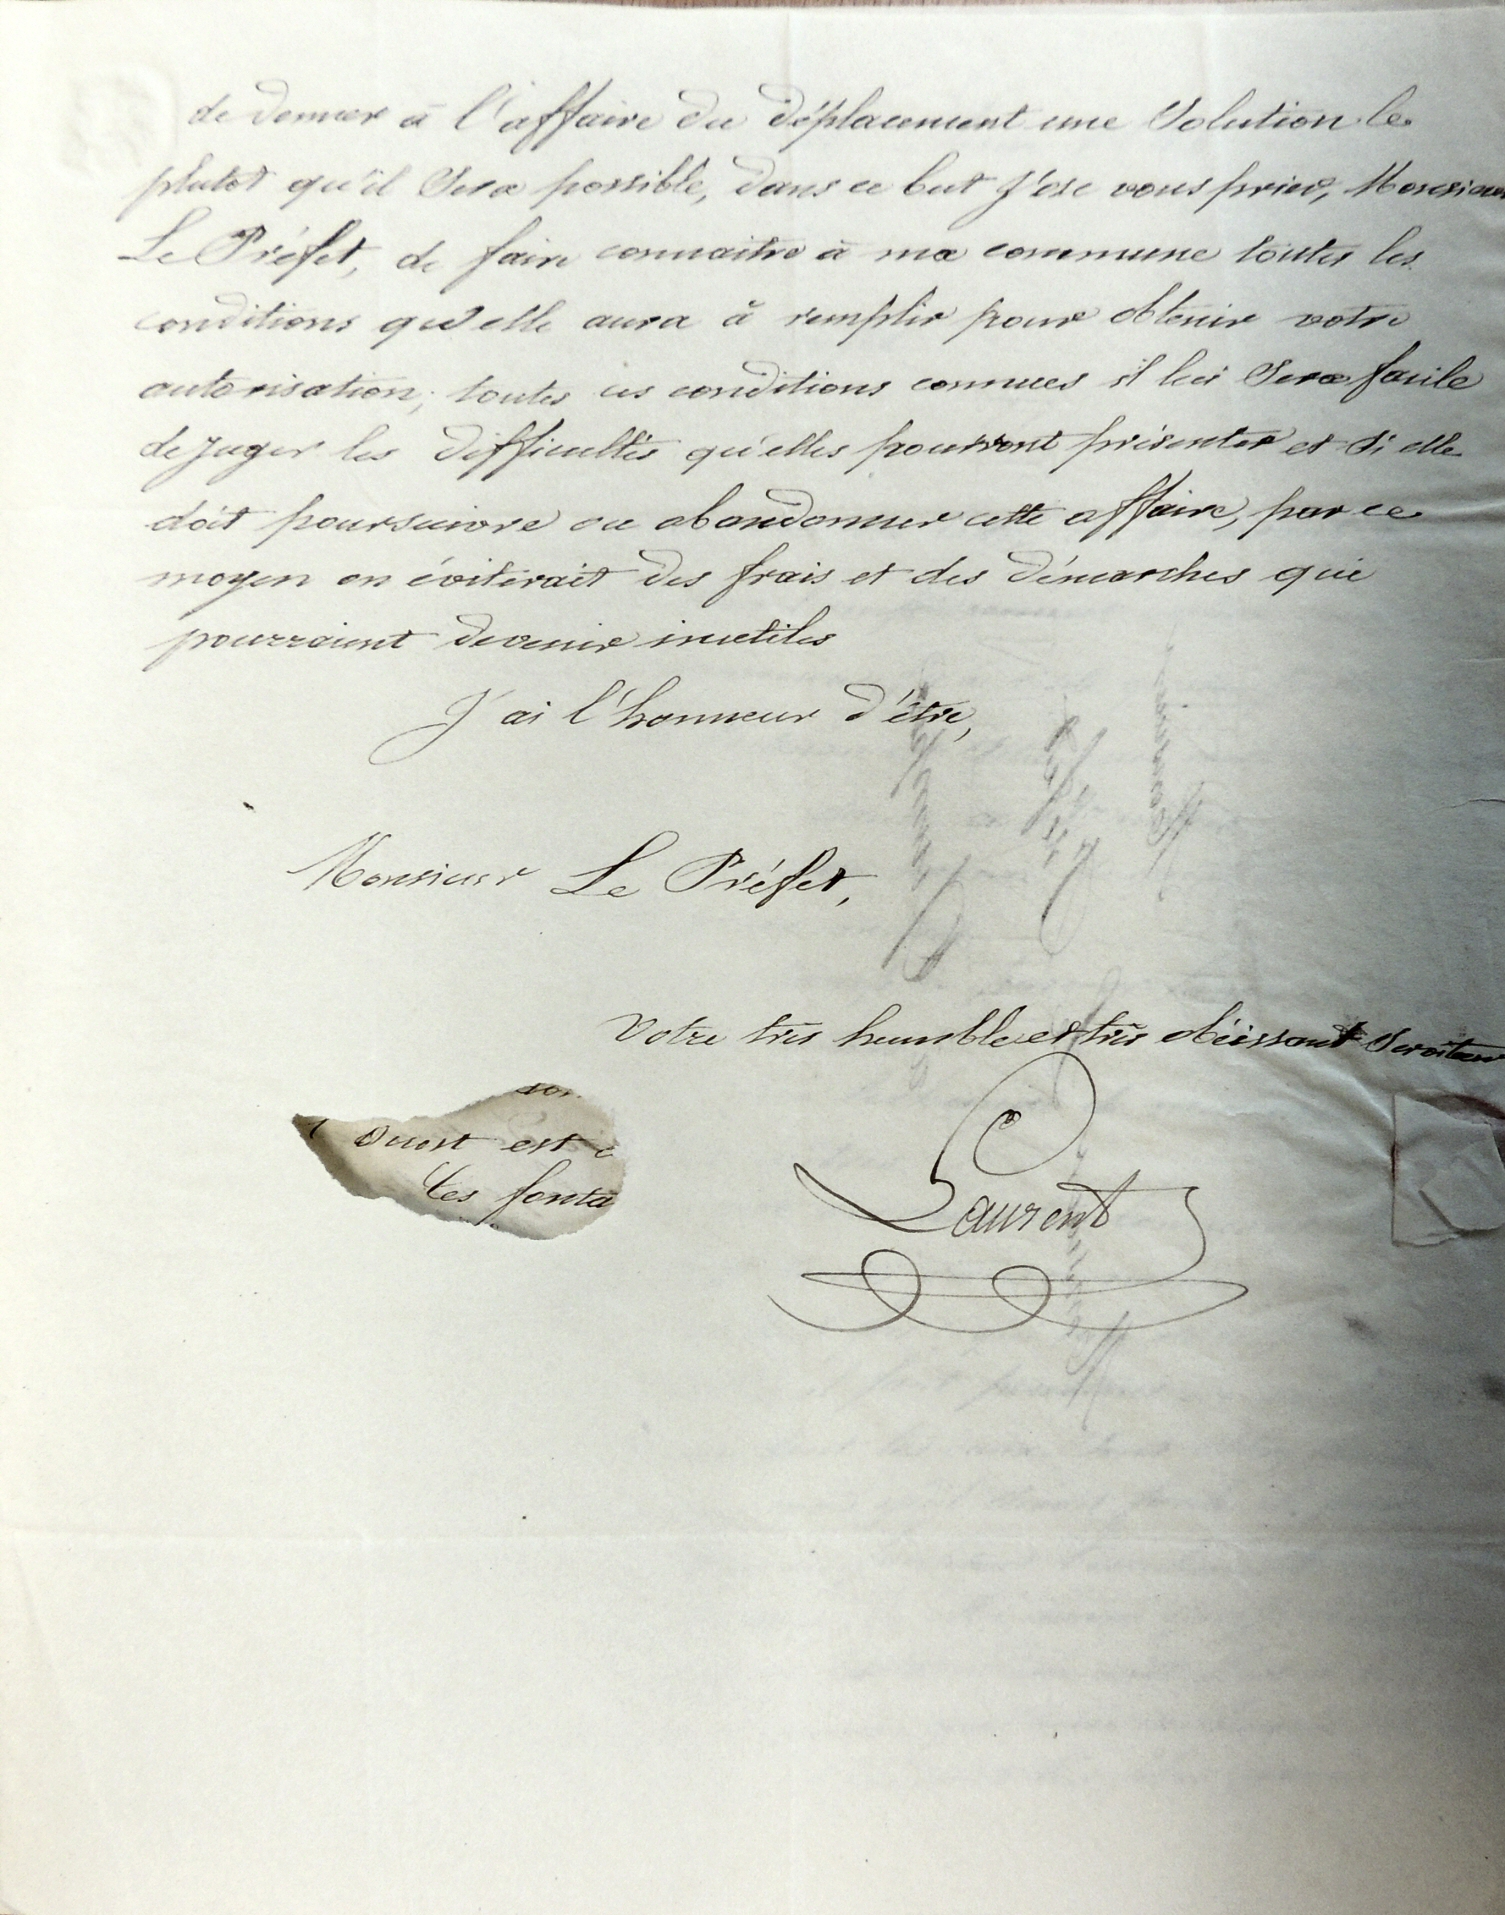 de donner à l'affaire du déplacement une Solution le
plutot qu'il Sera possible, dans ce but J'ose vous prier, Monsieur
Le Préfet, de faire connaitre à ma commune toutes les
conditions qu'elle aura à remplir pour obtenir votre
autorisation; toutes ces conditions connues il lui Sera facile
de Juger les difficultés qu'elles pourront présenter et Si elle
doit poursuivre ou abandonner cette affaire, par ce
moyen on éviterait des frais et des démarches qui
pourraient devenir inutiles
J'ai l'honneur d'être,
Monsieur Le Préfet,
Votre très humble et très obéissant Serviteur
Ouest est
Les fonta
Laurent